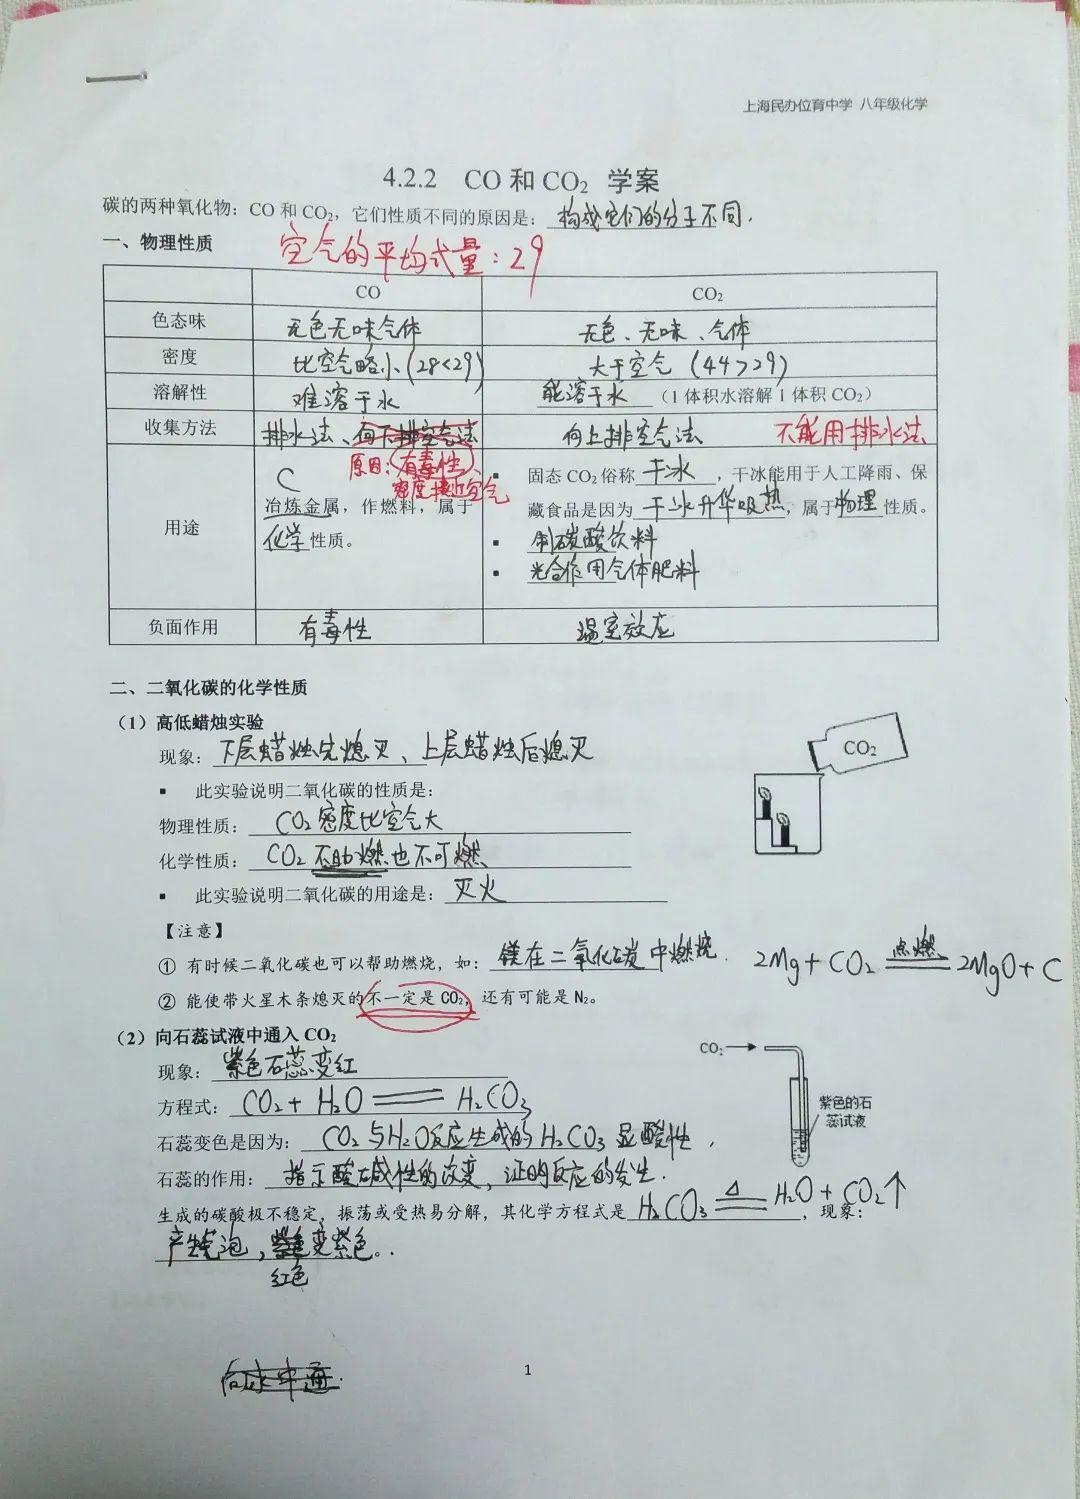 上海民办位育中学 八年级化学
4.2.2 CO 和 CO₂ 学案
碳的两种氧化物：CO 和 CO₂，它们性质不同的原因是：构成它们的分子不同.
一、物理性质
空气的平均式量：29
CO CO₂
色态味 无色无味气体 无色、无味、气体
密度 比空气略小(28<29) 大于空气 (44>29)
溶解性 难溶于水 能溶于水 （1 体积水溶解 1 体积 CO₂）
收集方法 排水法、向下排空气法 向上排空气法 不能用排水法
原因：有毒性、
密度接近空气
用途
C
冶炼金属，作燃料，属于
化学性质。
▪ 固态 CO₂ 俗称 干冰 ，干冰能用于人工降雨、保
藏食品是因为 干冰升华吸热，属于物理性质。
▪ 制碳酸饮料
▪ 光合作用气体肥料
负面作用 有毒性 温室效应
二、二氧化碳的化学性质
（1）高低蜡烛实验
现象：下层蜡烛先熄灭、上层蜡烛后熄灭
CO₂
▪ 此实验说明二氧化碳的性质是：
物理性质：CO₂密度比空气大
化学性质：CO₂不助燃也不可燃
▪ 此实验说明二氧化碳的用途是：灭火
【注意】
① 有时候二氧化碳也可以帮助燃烧，如：镁在二氧化碳中燃烧. 2Mg+CO₂ 点燃 2MgO+C
② 能使带火星木条熄灭的不一定是 CO₂，还有可能是 N₂。
（2）向石蕊试液中通入 CO₂
CO₂
现象：紫色石蕊变红
方程式：CO₂+H₂O══H₂CO₃
紫色的石
蕊试液
石蕊变色是因为：CO₂与H₂O反应生成的H₂CO₃显酸性.
石蕊的作用：指示酸碱性的改变，证明反应的发生.
生成的碳酸极不稳定，振荡或受热易分解，其化学方程式是 H₂CO₃ △══ H₂O+CO₂↑ ，现象：
产生气泡，紫色变紫色。.
红色
向水中通.
1